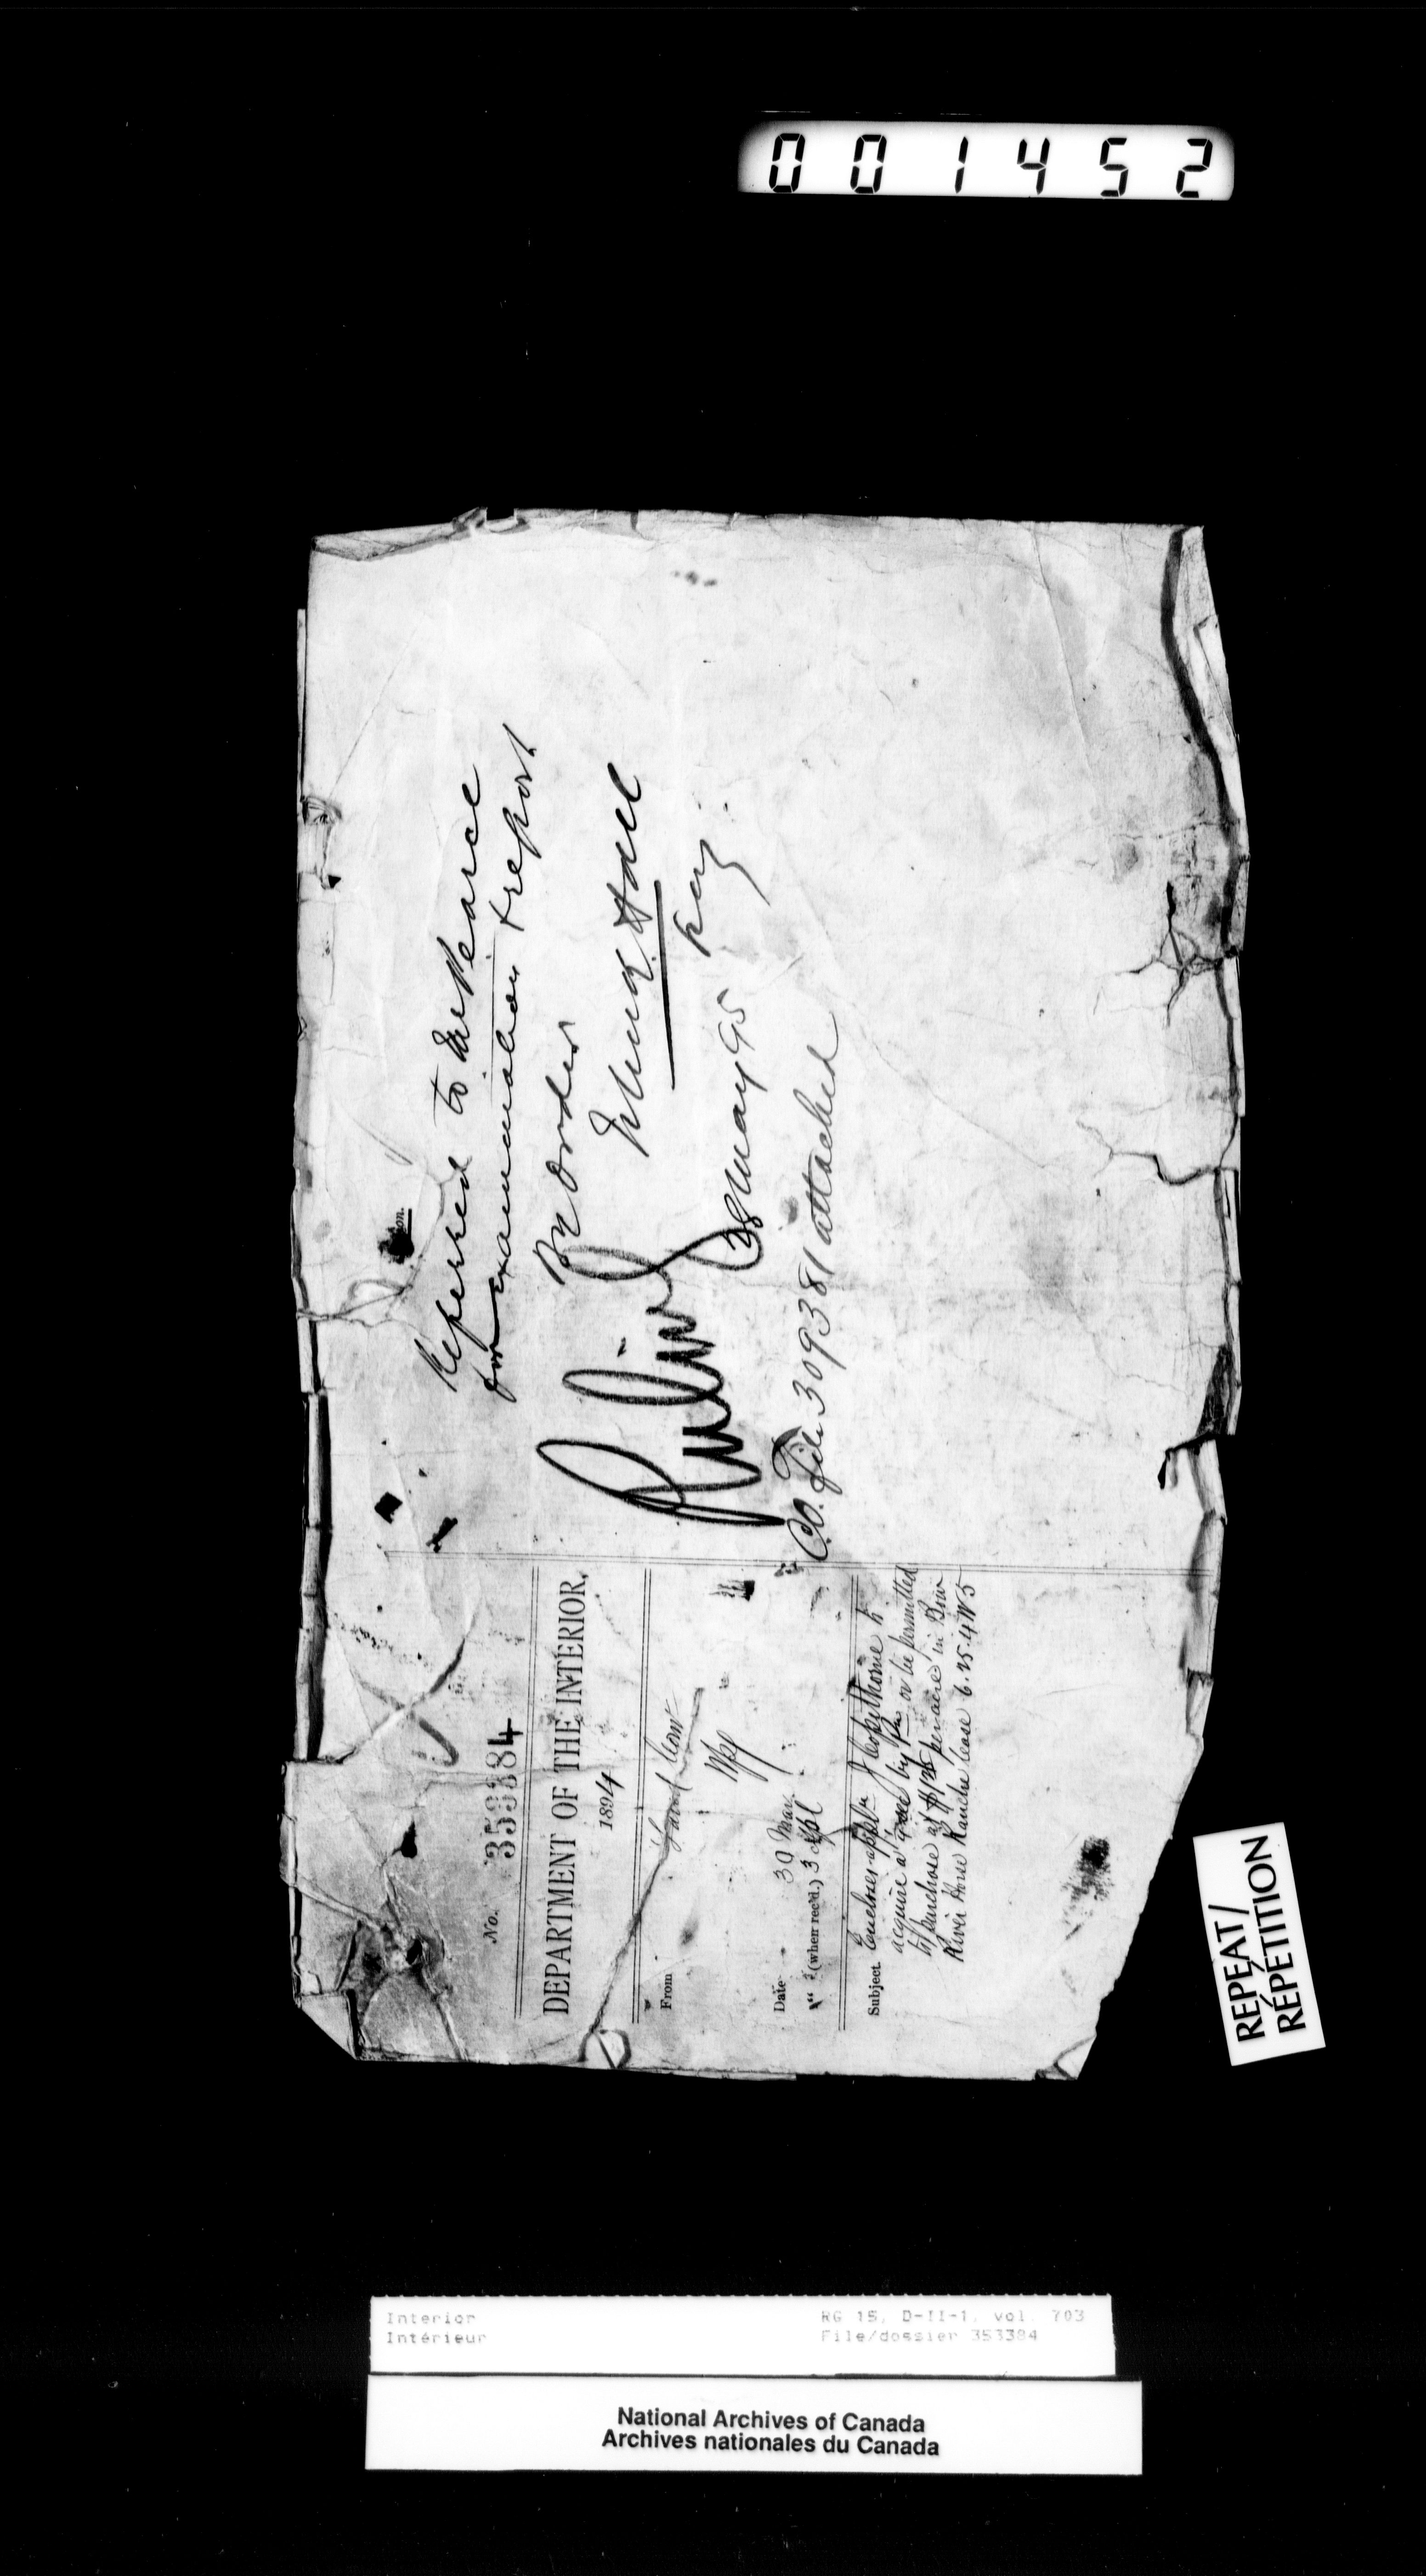 001452
No. 353384
DEPARTMENT OF THE INTERIOR,
1894
From Land Comr
Wpg
Date 30 Mar.
" (when rec'd.) 3 Apl
Subject. Encloses appln J Copithorne to
acquire a by or be permitted
to purchase at $1.25 per acre in Bow
River Horse Ranche lease 6.25.4W5
on.
Referred to Mr Pearce
for examination & report
By order
Hall
Secy.
28 May 95
C.O. File 309381 attached
REPEAT/
RÉPÉTITION
Interior
Intérieur
RG 15, D-II-1, vol. 703
File/dossier 353384
National Archives of Canada
Archives nationales du Canada